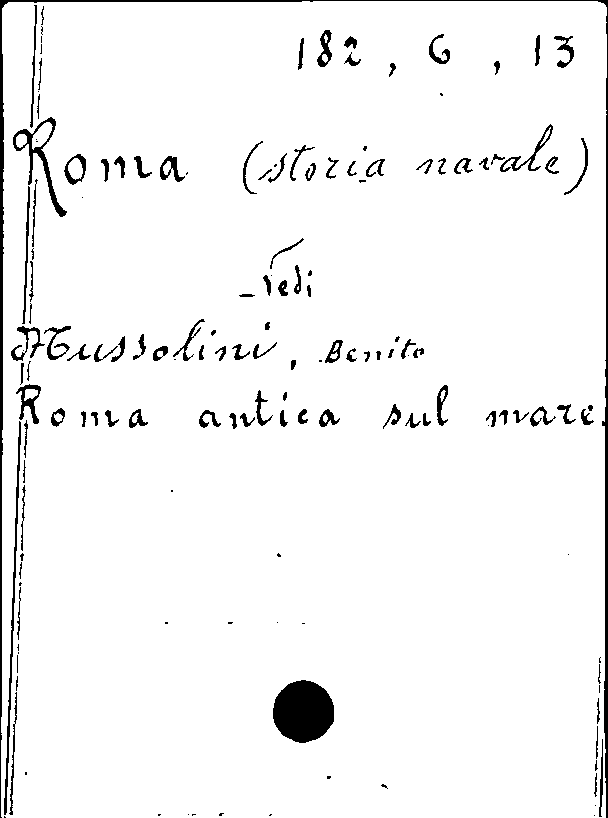 182, 6, 13
Roma (storia navale)
- Vedi
Mussolini, Benito
Roma antica sul mare.